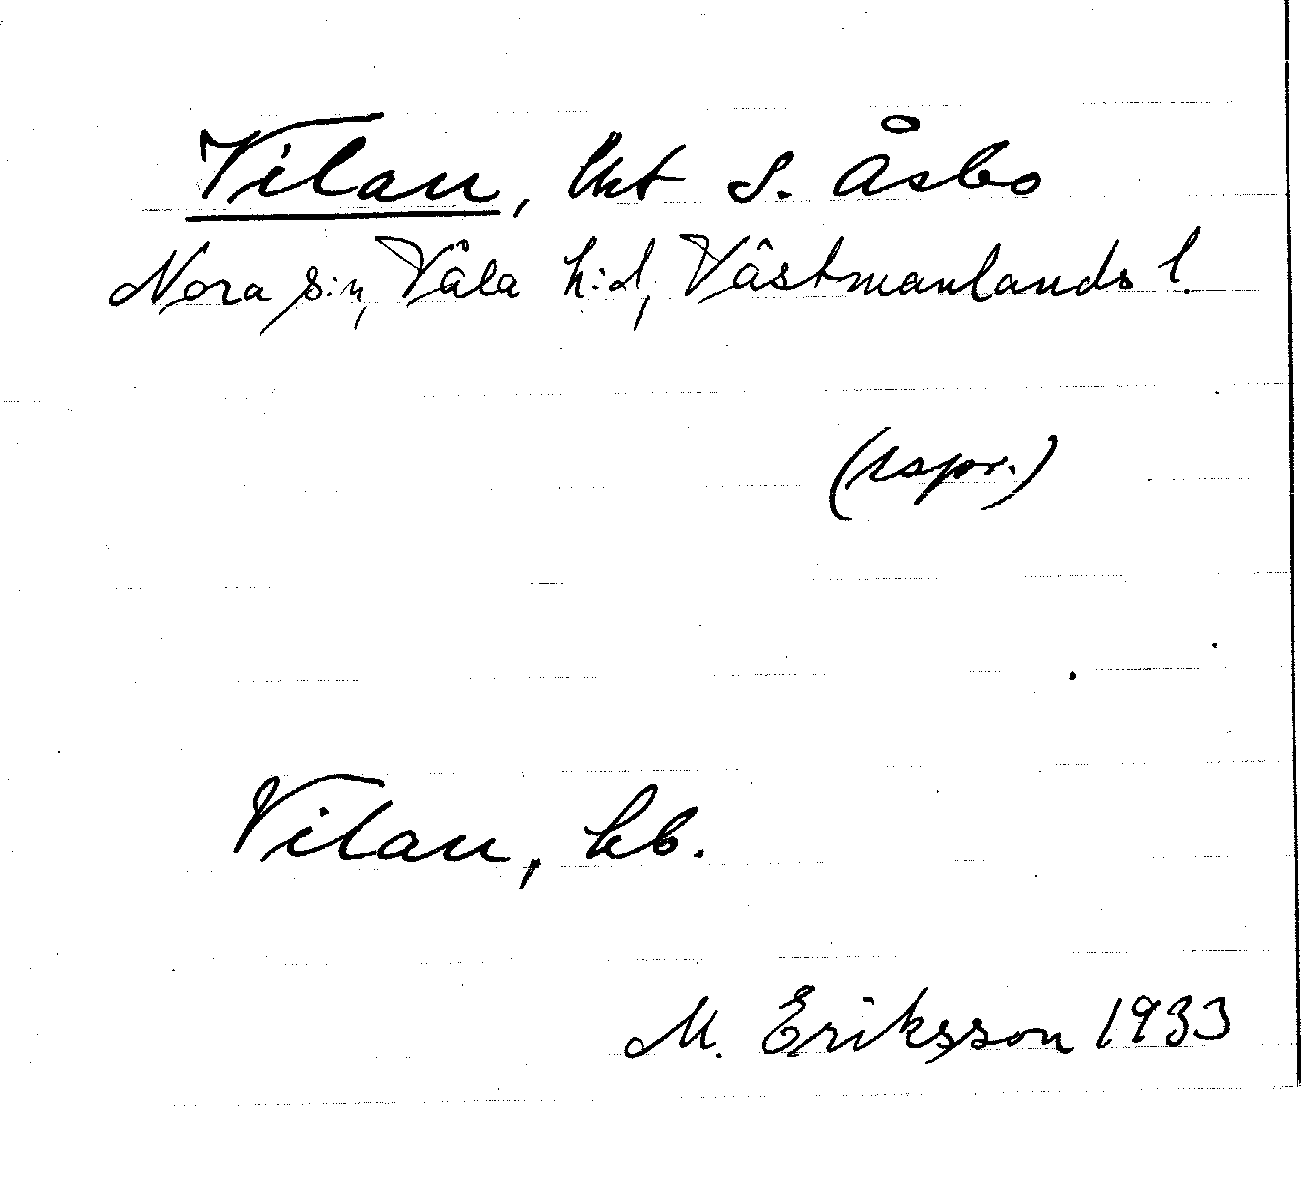 Vilan, lht S. Åsbo
Nora s:n, Våla h:d, Västmanlands l.
(rspr.)
Vilan, hb.
M. Eriksson 1933